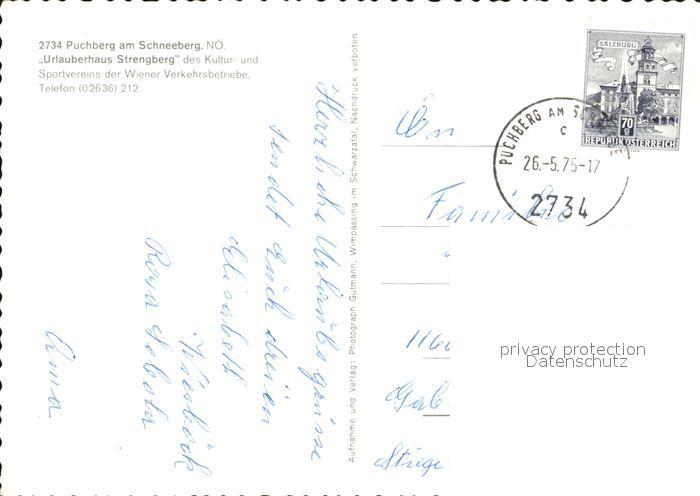 2734 Puchberg am Schneeberg, NÖ.
„Urlauberhaus Strengberg" des Kultur- und
Sportvereins der Wiener Verkehrsbetriebe,
Telefon (02636) 212
Herzliche Urlaubsgrüsse
sendet Euch dreien
Elisabeth
Rosa
Oma
Aufnahme und Verlag: Photograph Gutmann, Wimpassing im Schwarzatal, Nachdruck verboten
SALZBURG
70
g
REPUBLIK ÖSTERREICH
PUCHBERG AM
c
26.-5.75-17
2734
An
Familie
116
Gab
Stiege
privacy protection
Datenschutz